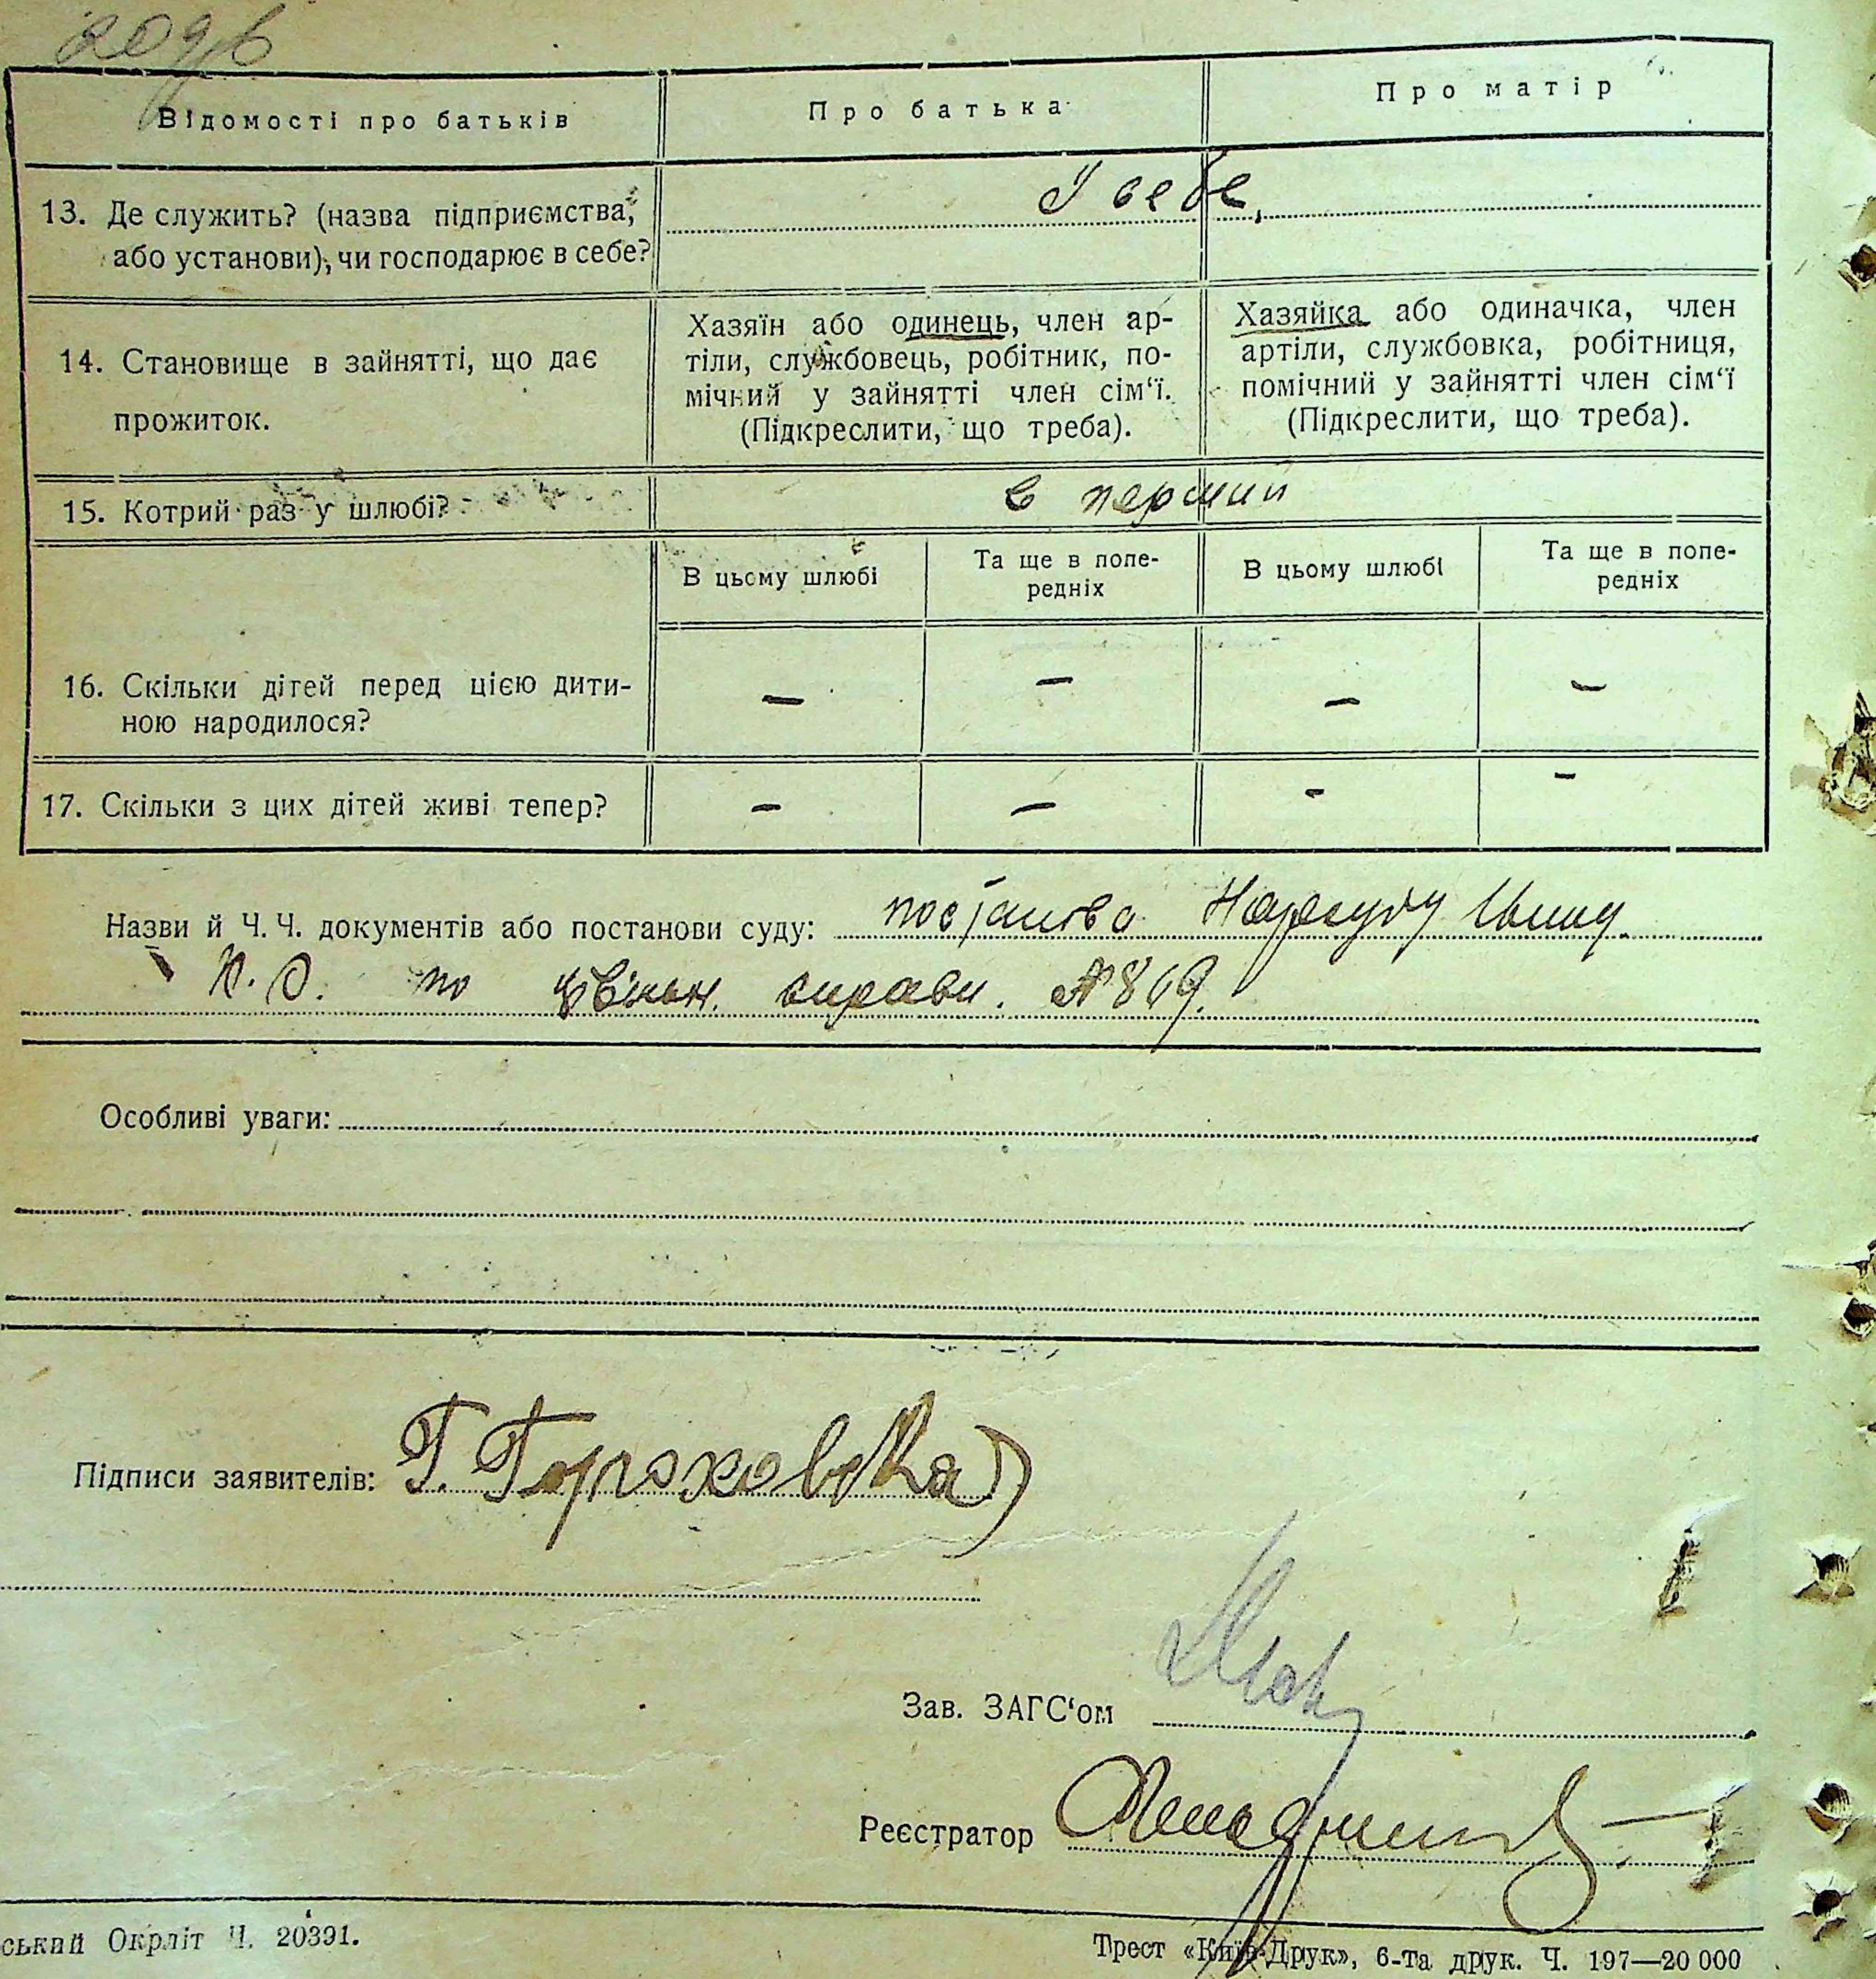 Відомості про батьків
Про батька
Про матір
13. Де служить? (назва підприємства,
або установи), чи господарює в себе?
У себе,
14. Становище в зайнятті, що дає
прожиток.
Хазяїн або одинець, член ар-
тіли, службовець, робітник, по-
мічний у зайнятті член сім‘ї.
(Підкреслити, що треба).
Хазяйка або одиначка, член
артіли, службовка, робітниця,
помічний у зайнятті член сім‘ї
(Підкреслити, що треба).
15. Котрий раз у шлюбі?
в перший
В цьому шлюбі
Та ще в попе-
редніх
В цьому шлюбі
Та ще в попе-
редніх
16. Скільки дітей перед цією дити-
ною народилося?
— — — —
17. Скільки з цих дітей живі тепер?
— — - -
Назви й Ч. Ч. документів або постанови суду: постанова Нарсуду
по справи. №869.
Особливі уваги:
Підписи заявителів: Г. Гороховска
Зав. ЗАГС‘ом
Реєстратор
ський Окрліт Ч. 20391.
Трест «Київ-Друк», 6-та друк. Ч. 197—20 000